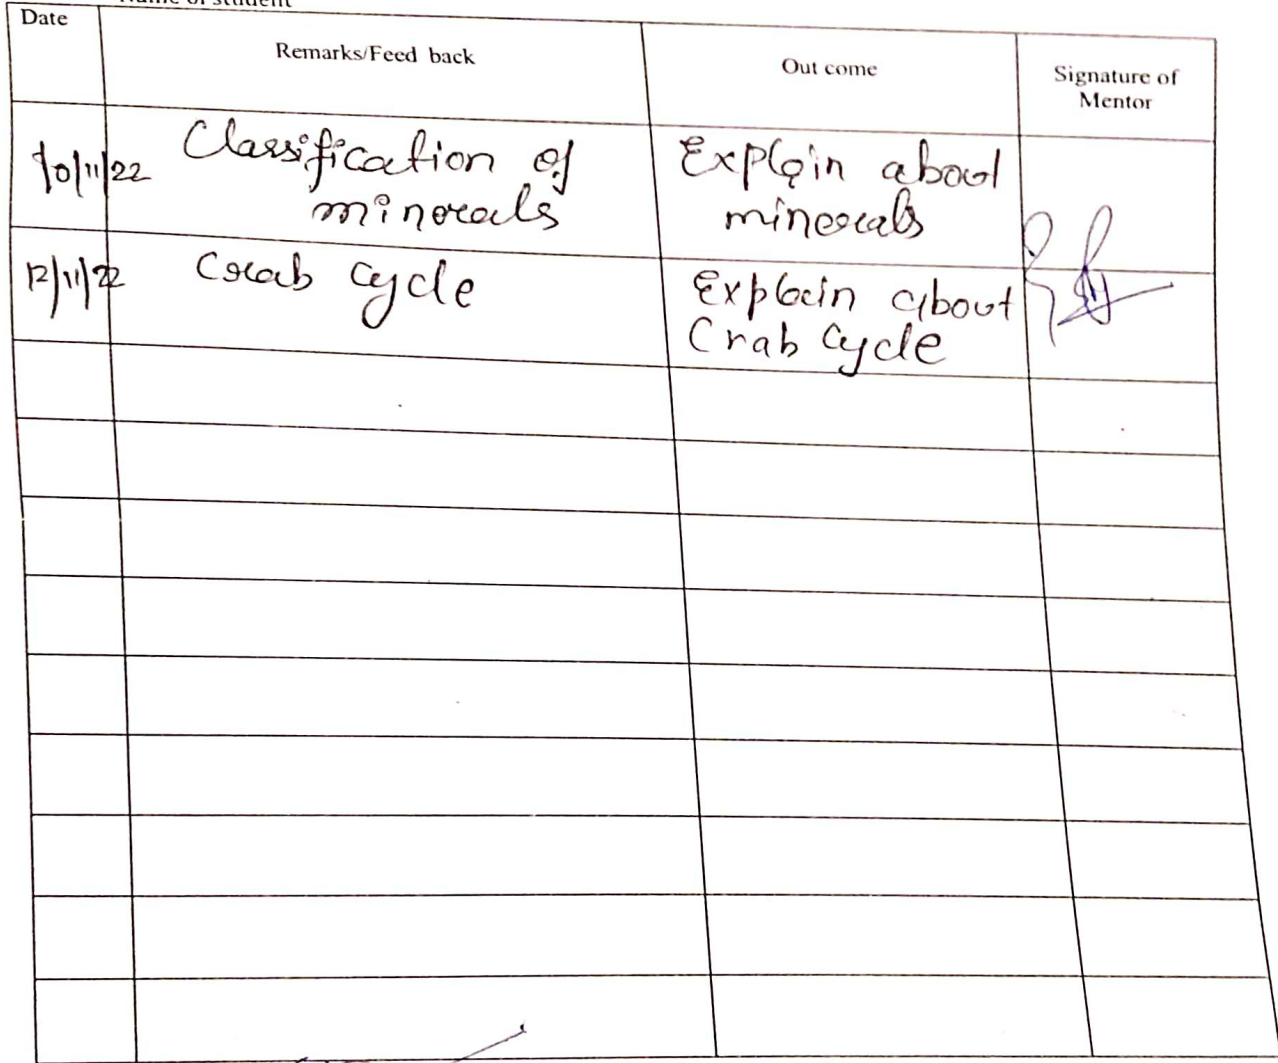 Name of student
Date
Remarks/Feed back
Out come
Signature of
Mentor
10/11/22
Classification of
minerals
Explain about
minerals
12/11/22
Crab cycle
Explain about
Crab cycle